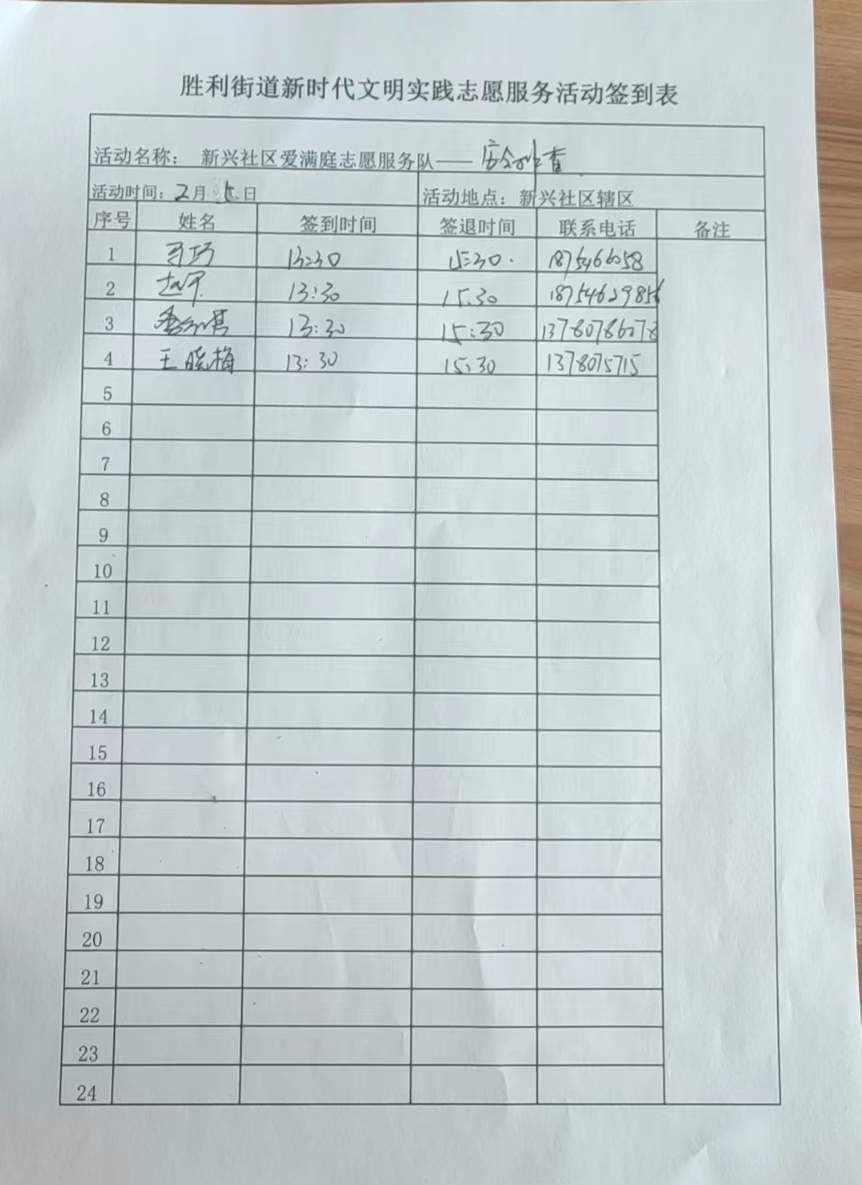 胜利街道新时代文明实践志愿服务活动签到表
活动名称： 新兴社区爱满庭志愿服务队—— 查
活动时间：2月5日 活动地点：新兴社区辖区
序号 姓名 签到时间 签退时间 联系电话 备注
1 13:30 15:30. 1875466058
2 13:30 15:30 18754629856
3 13:30 15:30 13780786078
4 王晓梅 13:30 15:30 1378075715
5
6
7
8
9
10
11
12
13
14
15
16
17
18
19
20
21
22
23
24